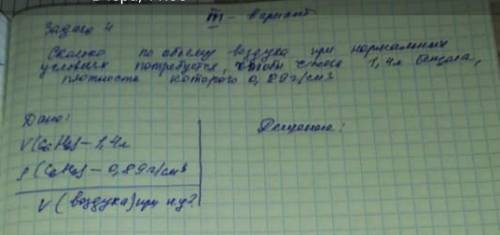 III - вариант
Задача 4
Сколько по объему воздуха при нормальных
условиях потребуется, чтобы сжечь 1,4л бензола,
плотность которого 0,89г/см³
Дано:
V(C6H6) - 1,4л
ρ(C6H6) - 0,89г/см³
V (воздуха) при н.у?
Решение: